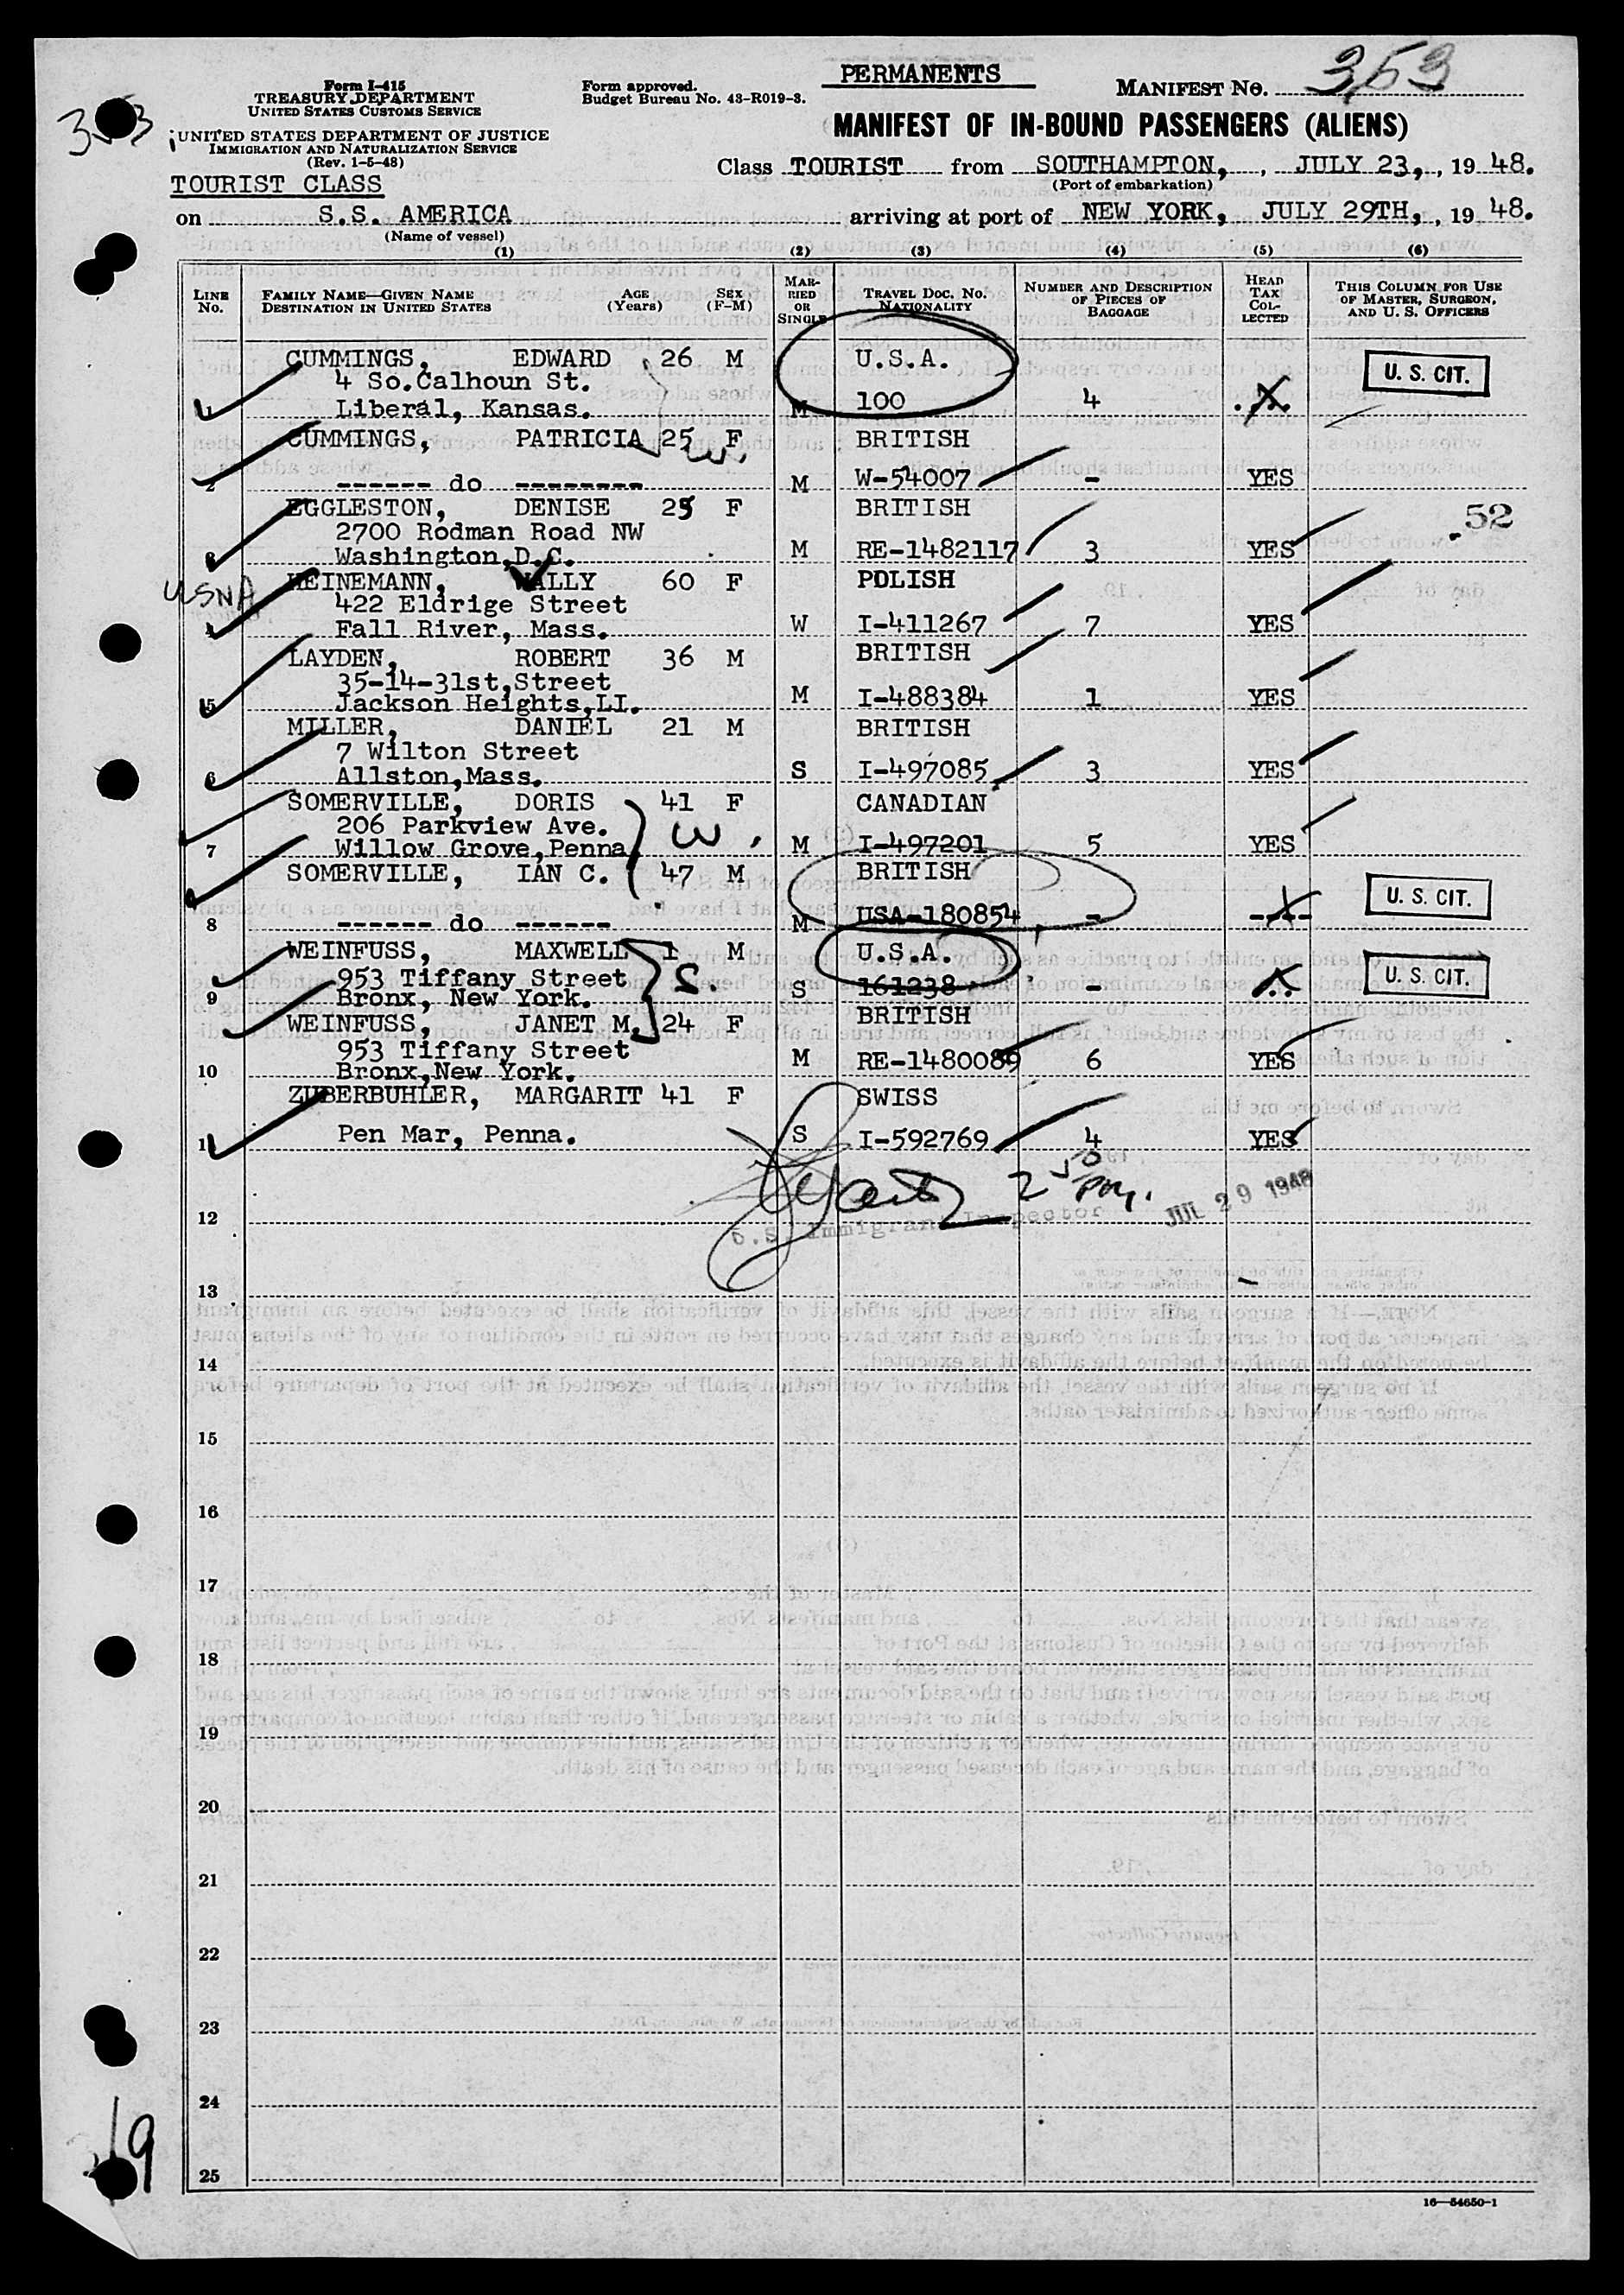 PERMANENTS
Form I-415
TREASURY DEPARTMENT
UNITED STATES CUSTOMS SERVICE
Form approved.
Budget Bureau No. 43-R019-3.
MANIFEST NO. 353
353
UNITED STATES DEPARTMENT OF JUSTICE
IMMIGRATION AND NATURALIZATION SERVICE
(Rev. 1-5-48)
MANIFEST OF IN-BOUND PASSENGERS (ALIENS)
TOURIST CLASS
Class TOURIST from SOUTHAMPTON, , JULY 23, , 19 48.
(Port of embarkation)
on S.S. AMERICA arriving at port of NEW YORK, JULY 29TH, , 19 48.
(Name of vessel)
(1) (2) (3) (4) (5) (6)
LINE No. FAMILY NAME—GIVEN NAME DESTINATION IN UNITED STATES AGE (Years) SEX (F-M) MARRIED OR SINGLE TRAVEL DOC. NO. NATIONALITY NUMBER AND DESCRIPTION OF PIECES OF BAGGAGE HEAD TAX COLLECTED THIS COLUMN FOR USE OF MASTER, SURGEON, AND U. S. OFFICERS
CUMMINGS, EDWARD 26 M U.S.A. U. S. CIT.
4 So.Calhoun St.
1 Liberal, Kansas. M 100 4
CUMMINGS, PATRICIA 25 F BRITISH
W.
2 ------ do -------- M W-54007 - YES
EGGLESTON, DENISE 25 F BRITISH
2700 Rodman Road NW 52
3 Washington,D.C. M RE-1482117 3 YES
USNA HEINEMANN, WALLY 60 F POLISH
422 Eldrige Street
4 Fall River, Mass. W I-411267 7 YES
LAYDEN, ROBERT 36 M BRITISH
35-14-31st,Street
5 Jackson Heights,LI. M I-488384 1 YES
MILLER, DANIEL 21 M BRITISH
7 Wilton Street
6 Allston,Mass. S I-497085 3 YES
SOMERVILLE, DORIS 41 F CANADIAN
206 Parkview Ave. W.
7 Willow Grove,Penna M I-497201 5 YES
SOMERVILLE, IAN C. 47 M BRITISH U. S. CIT.
8 ------ do ------ M USA-180854 - ---
WEINFUSS, MAXWELL 1 M U.S.A. U. S. CIT.
953 Tiffany Street S.
9 Bronx, New York. S 161238 -
WEINFUSS, JANET M. 24 F BRITISH
953 Tiffany Street
10 Bronx,New York. M RE-1480089 6 YES
ZUBERBUHLER, MARGARIT 41 F SWISS
11 Pen Mar, Penna. S I-592769 4 YES
2 50 PM. JUL 29 1948
U.S. Immigrant Inspector
12
13
14
15
16
17
18
19
20
21
22
23
24
25
19
16—54650-1